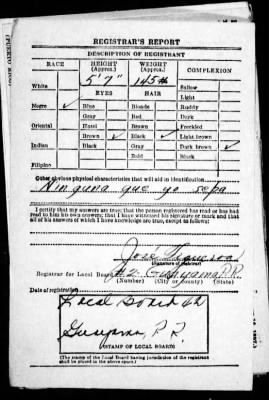 REGISTRAR'S REPORT
DESCRIPTION OF REGISTRANT
RACE HEIGHT (Approx.) WEIGHT (Approx.) COMPLEXION
White 5'7" 145# Sallow
EYES HAIR Light
Negro ✓ Blue Blonde Ruddy
Gray Red Dark
Oriental Hazel Brown Freckled
Brown ✓ Black ✓ Light brown
Indian Black Gray Dark brown ✓
Bald Black
Filipino
Other obvious physical characteristics that will aid in identification
Ninguna que yo sepa
I certify that my answers are true; that the person registered has read or has had
read to him his own answers; that I have witnessed his signature or mark and that
all of his answers of which I have knowledge are true, except as follows:
José
(Signature of registrar)
Registrar for Local Board #2 Guayama P.R.
(Number) (City or county) (State)
Date of registration
Local Board #2
Guayama, P. R.
(STAMP OF LOCAL BOARD)
(The stamp of the Local Board having jurisdiction of the registrant
shall be placed in the above space.)